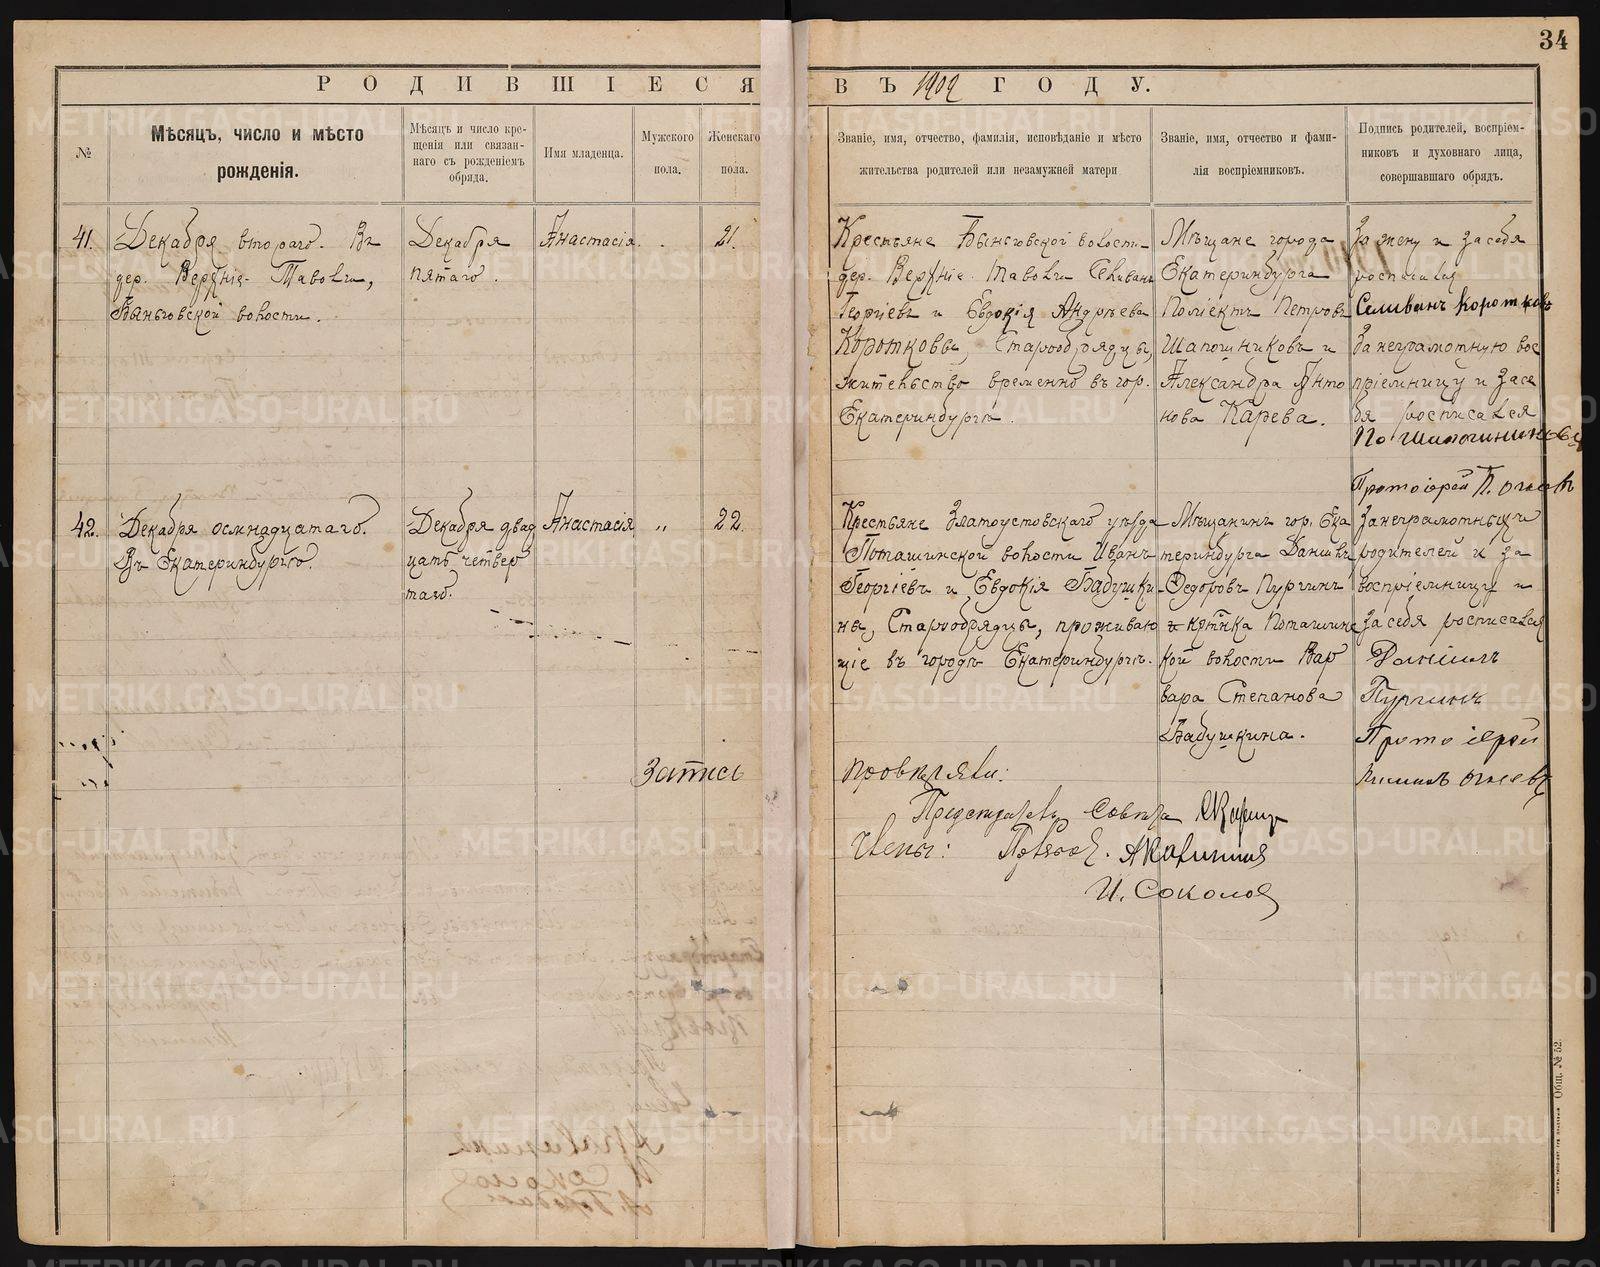 34
РОДИВШІЕСЯ ВЪ 1909 ГОДУ.
№
Мѣсяцъ, число и мѣсто
рожденія.
Мѣсяцъ и число кре-
щенія или связан-
наго съ рожденіемъ
обряда.
Имя младенца.
Мужского
пола.
Женскаго
пола.
Званіе, имя, отчество, фамилія, исповѣданіе и мѣсто
жительства родителей или незамужней матери
Званіе, имя, отчество и фами-
лія воспріемниковъ.
Подпись родителей, воспріем-
никовъ и духовнаго лица,
совершавшаго обрядъ.
41.
Декабря второго. Въ
дер. Верхніе Таволги,
Быньговской волости.
Декабря
пятаго.
Анастасія.
21.
Крестьяне Быньговской волости
дер. Верхніе Таволги Селиванъ
Георгіевъ и Евдокія Андреева
Коротковы, Старообрядцы,
жительство временно въ гор.
Екатеринбургѣ.
Мѣщане города
Екатеринбурга
Поліектъ Петровъ
Шапошниковъ и
Александра Анто
нова Карева.
За жену и за себя
росписался
Селиванъ Коротковъ
За неграмотную вос
пріемницу и за се
бя росписался
Протоіерей П.
42.
Декабря осмнадцатаго.
Въ Екатеринбургѣ.
Декабря двад
цать четвер
таго.
Анастасія
"
22.
Крестьяне Златоустовскаго уѣзда
Поташинской волости Иванъ
Георгіевъ и Евдокія Бабушки-
ны, Старообрядцы, проживаю
щіе въ городѣ Екатеринбургѣ.
Мѣщанинъ гор. Ека
теринбурга Даніилъ
Федоровъ Пургинъ
и кр-нка Поташинс
кой волости Вар
вара Степанова
Бабушкина.
За неграмотныхъ
родителей и за
воспріемницу и
за себя росписался
Даніилъ
Пургинъ
Протоіерей
Запись провѣряли:
Предсѣдатель Совѣта
Члены:
И. Соколов
Общ. № 52.
METRIKI.GASO-URAL.RU